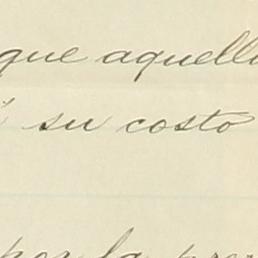 que aquell
su costo
por la pre